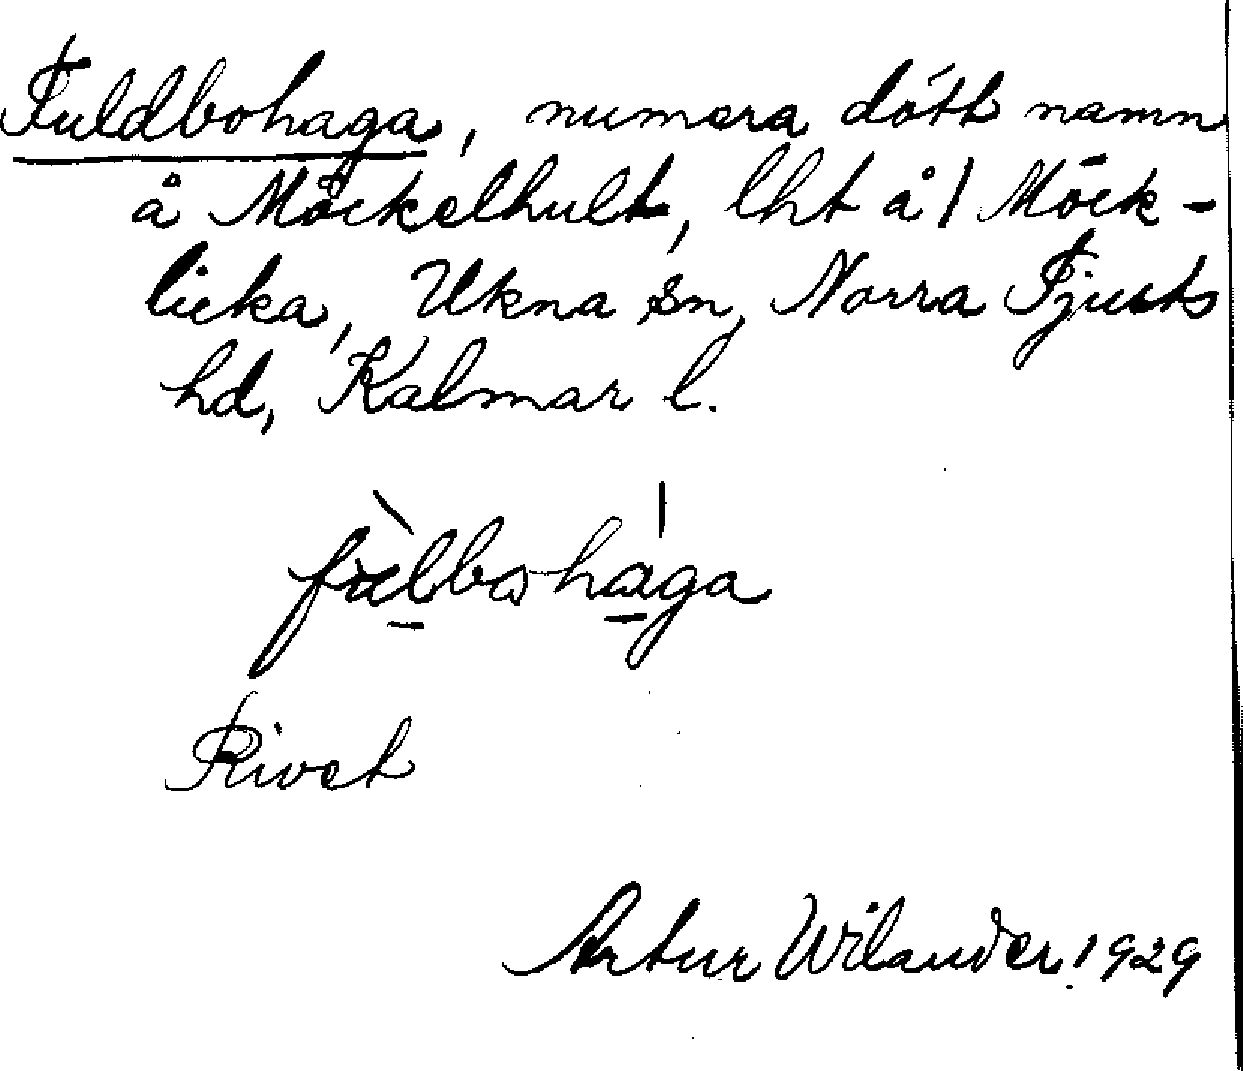 Fuldbohaga, numera dött namn
å Möckelhult, lht å 1 Möck-
licka, Ukna sn, Norra Tjusts
hd, Kalmar l.
fùlbohaga
Rivet
Artur Wilander. 1929